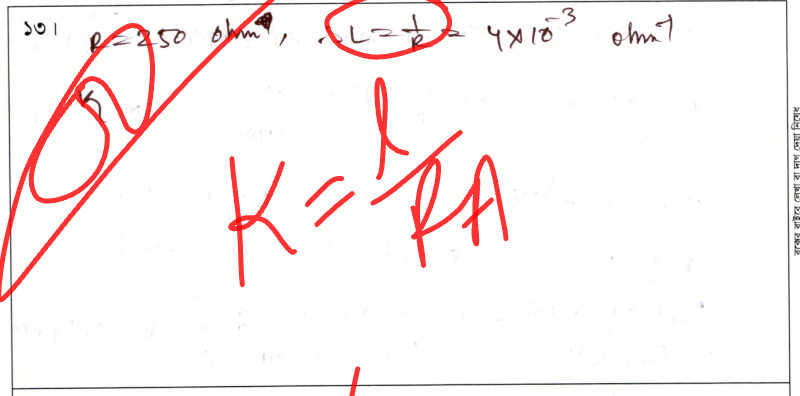 ১৩। R = 250 ohm, ∴ L = 1/R = 4×10⁻³ ohm⁻¹
K
K = l/RA
বক্সের বাইরে লেখা বা দাগ দেয়া নিষেধ